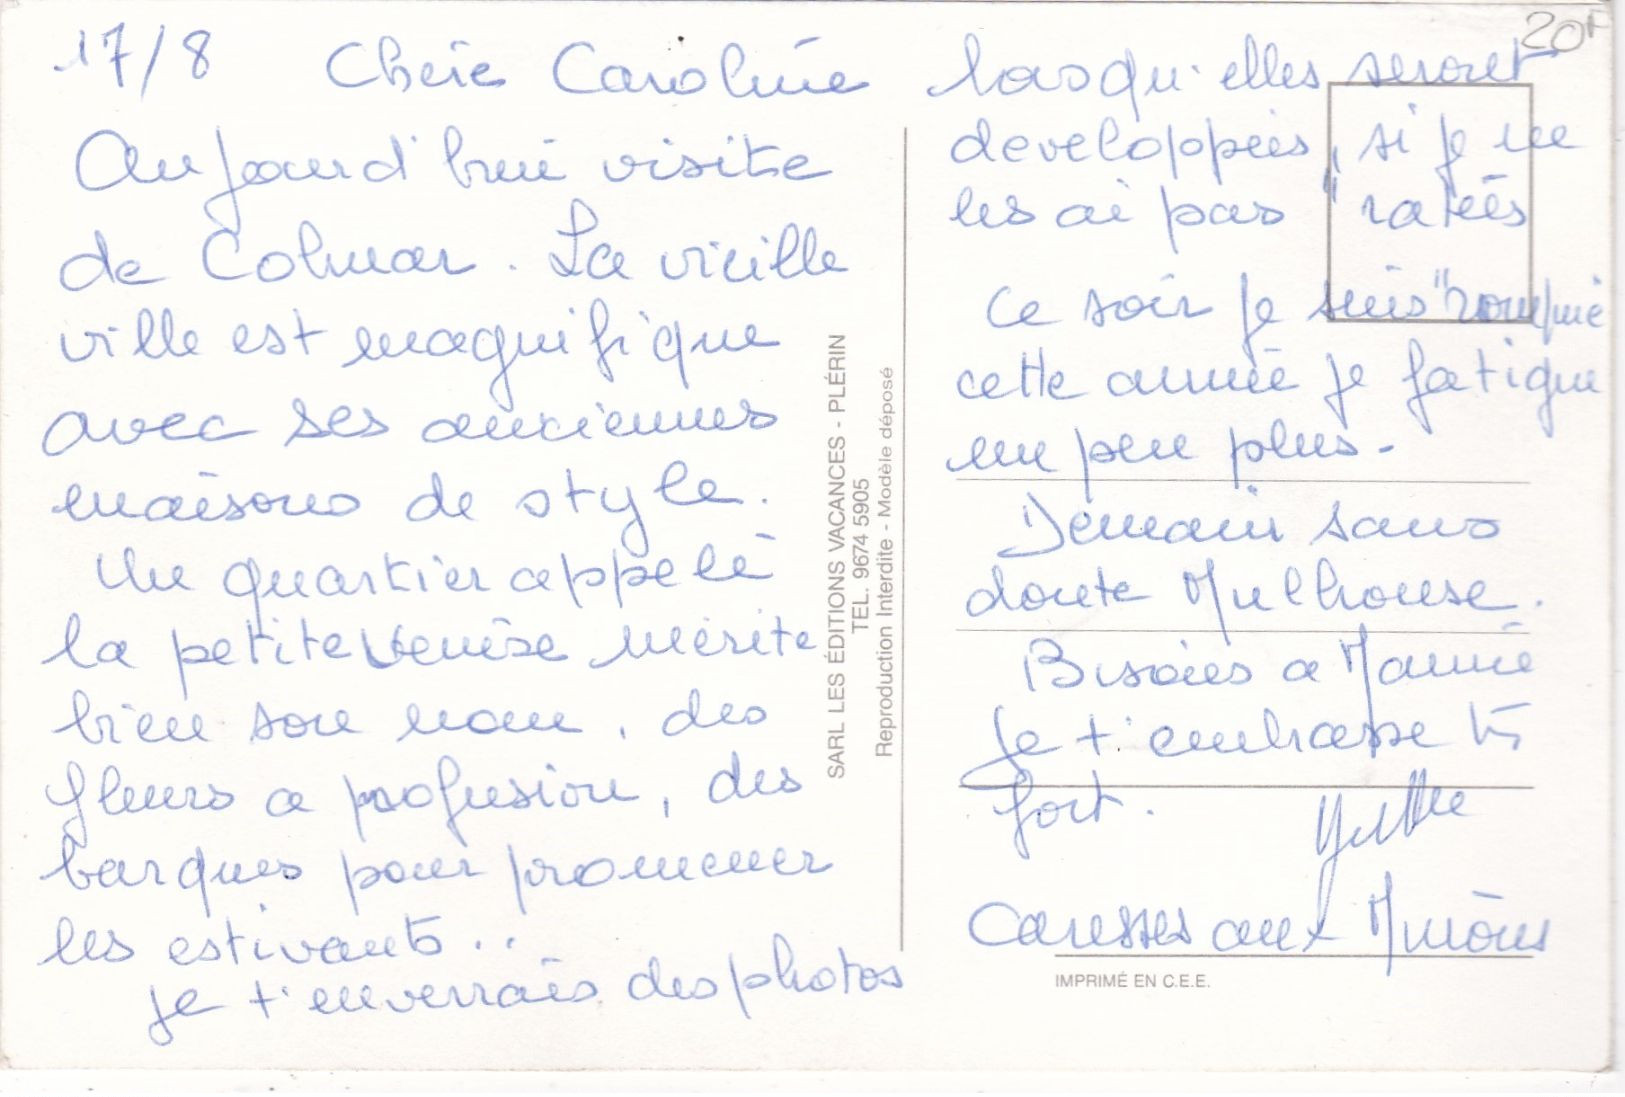 17/8 Chère Caroline
Aujourd'hui visite
de Colmar. La vieille
ville est magnifique
avec ses anciennes
maisons de style.
Un quartier appelé
la petite Venise mérite
bien son nom, des
fleurs a profusion, des
barques pour promener
les estivants..
je t'enverrais des photos
lorsqu'elles seront
developpées, si je ne
les ai pas "ratées
Ce soir je suis "rompue
cette année je fatigue
un peu plus -
Demain sans
doute Mulhouse.
Bisoies a Mamie
Je t'embrasse très
fort.
Yvette
Caresses aux
SARL LES ÉDITIONS VACANCES - PLÉRIN
TEL. 9674 5905
Reproduction Interdite - Modèle déposé
IMPRIMÉ EN C.E.E.
20F